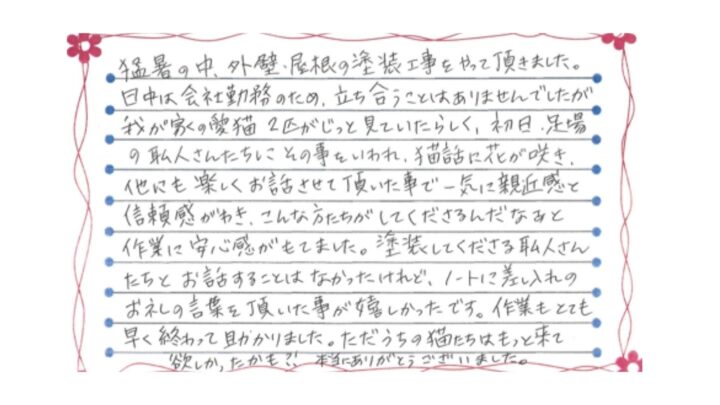 猛暑の中、外壁・屋根の塗装工事をやって頂きました。
日中は会社勤務のため、立ち合うことはありませんでしたが
我が家の愛猫2匹がじっと見ていたらしく、初日、足場
の職人さんたちにその事をいわれ、猫話に花が咲き、
他にも楽しくお話させて頂いた事で一気に親近感と
信頼感がわき、こんな方たちがしてくださるんだなぁと
作業に安心感がもてました。塗装してくださる職人さん
たちとお話することはなかったけれど、ノートに差し入れの
お礼の言葉を頂いた事が嬉しかったです。作業もとても
早く終わって助かりました。ただうちの猫たちはもっと来て
欲しかったかも?! 本当にありがとうございました。